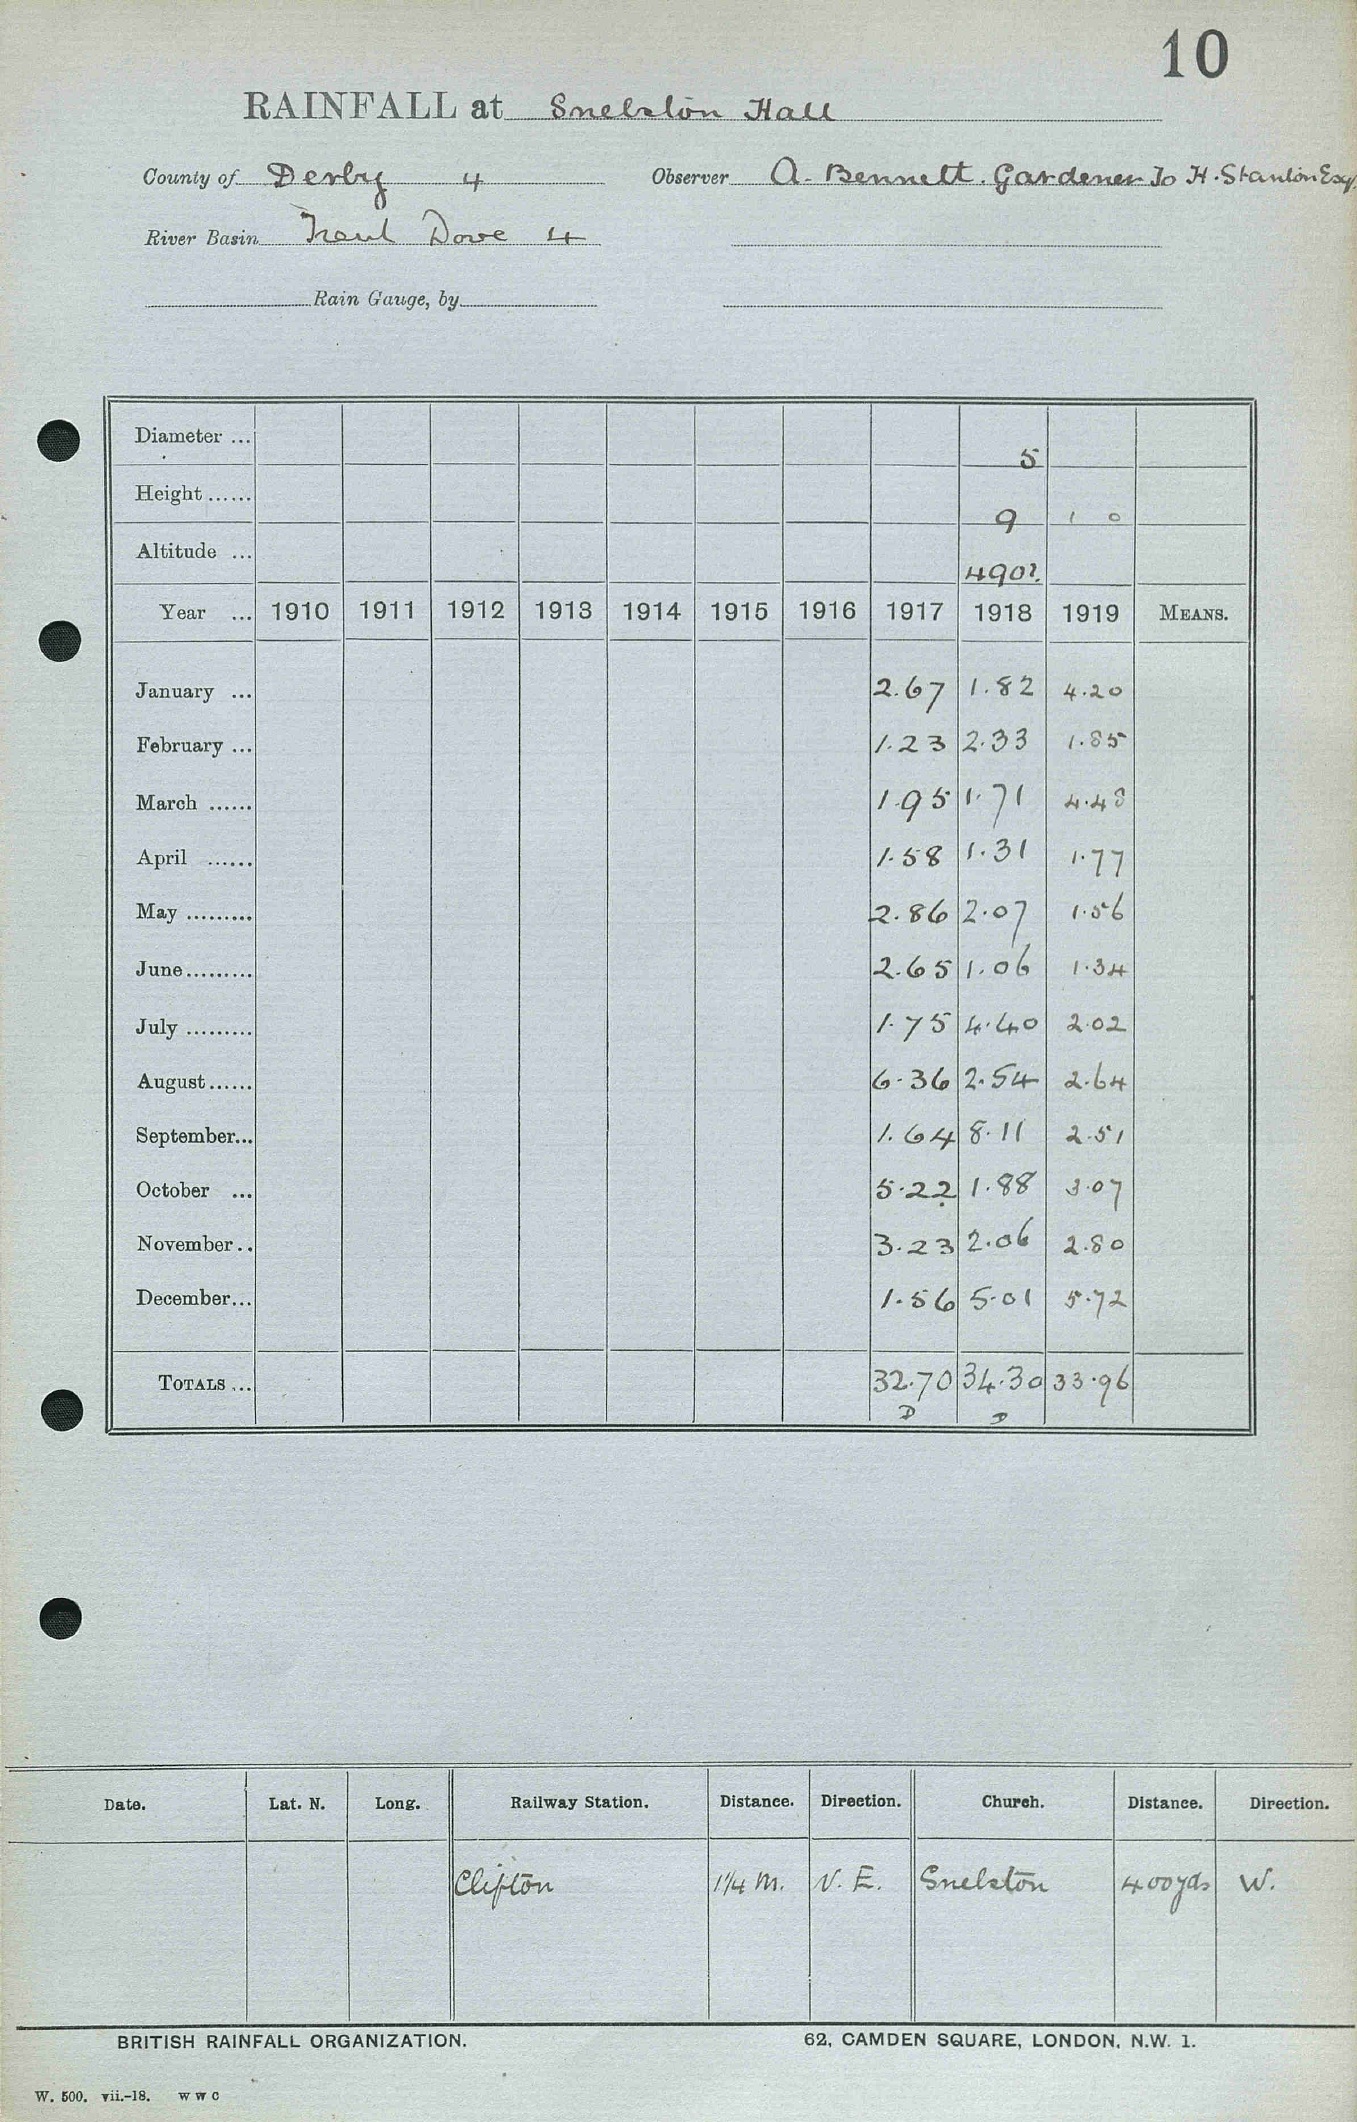 10
RAINFALL at Snelston Hall
County of Derby 4 Observer A. Bennett. Gardener To H. Stanton Esq
River Basin Trent Dove 4
Rain Gauge, by
Diameter ... 5
Height ...... 9 1 0
Altitude ... 490?
Year ... 1910 1911 1912 1913 1914 1915 1916 1917 1918 1919 MEANS.
January ... 2.67 1.82 4.20
February ... 1.23 2.33 1.85
March ...... 1.95 1.71 4.48
April ...... 1.58 1.31 1.77
May ......... 2.86 2.07 1.56
June......... 2.65 1.06 1.34
July ......... 1.75 4.40 2.02
August...... 6.36 2.54 2.64
September... 1.64 8.11 2.51
October ... 5.22 1.88 3.07
November.. 3.23 2.06 2.80
December... 1.56 5.01 5.72
TOTALS ... 32.70 34.30 33.96
D D
Date. Lat. N. Long. Railway Station. Distance. Direction. Church. Distance. Direction.
Clifton 1¼ M. N. E. Snelston 400yds W.
BRITISH RAINFALL ORGANIZATION. 62, CAMDEN SQUARE, LONDON, N.W. 1.
W. 500. vii.-18. W W C